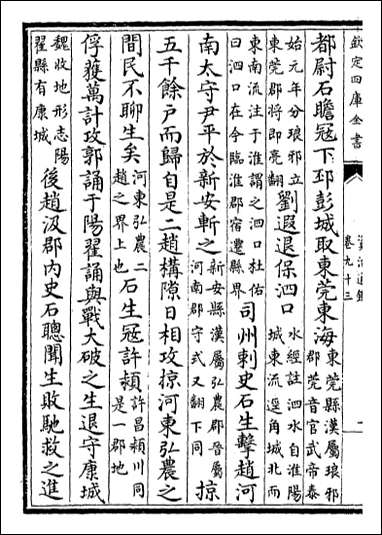 欽定四庫全書
資治通鑑
卷九十三
二
都尉石瞻冦下邳彭城取東莞東海
東莞縣漢屬琅邪
郡莞音官武帝泰
始元年分琅邪立
東莞郡將即亮翻
劉遐退保泗口
水經註泗水自淮陽
城東流逕角城北而
東南流注于淮謂之泗口杜佑
曰泗口在今臨淮郡宿遷縣界
司州刺史石生擊趙河
南太守尹平於新安斬之
新安縣漢屬弘農郡晉屬
河南郡守式又翻下同
掠
五千餘户而歸自是二趙構隙日相攻掠河東弘農之
間民不聊生矣
河東弘農二
趙之界上也
石生冦許潁
許昌潁川同
是一郡地
俘獲萬計攻郭誦于陽翟誦與戰大破之生退守康城
魏收地形志陽
翟縣有康城
後趙汲郡内史石聰聞生敗馳救之進